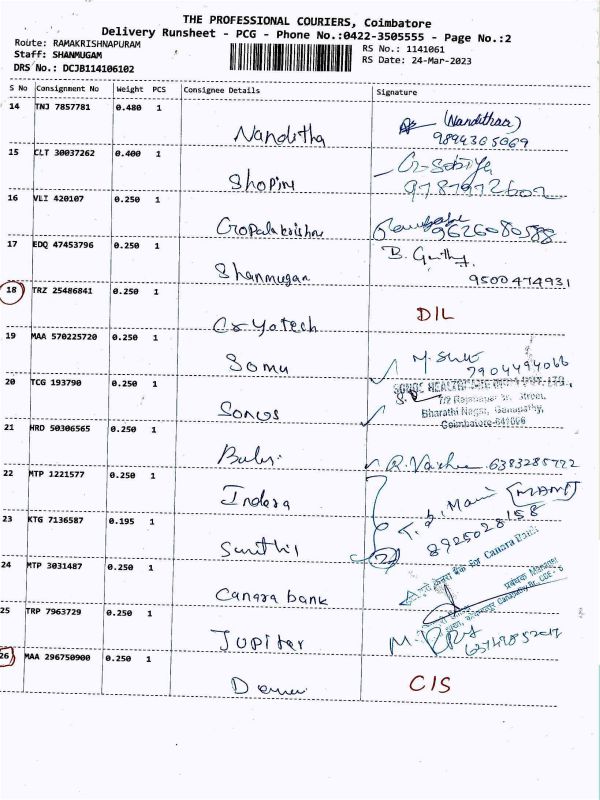 THE PROFESSIONAL COURIERS, Coimbatore
Delivery Runsheet - PCG - Phone No.:0422-3505555 - Page No.:2
Route: RAMAKRISHNAPURAM
RS No.: 1141061
Staff: SHANMUGAM
RS Date: 24-Mar-2023
DRS No.: DCJB114106102
S No Consignment No Weight PCS Consignee Details Signature
14 TNJ 7857781 0.480 1
Nanditha (Nandithaa)
9894305069
15 CLT 30037262 0.400 1
Shopini
16 VLI 420107 0.250 1
Gopalakrishna 9626080588
17 EDQ 47453796 0.250 1
Shanmugam 9500474931
18 TRZ 25486841 0.250 1
DIL
19 MAA 570225720 0.250 1
Somu 7904494066
20 TCG 193790 0.250 1
Bharathi Nagar, Ganapathy,
Coimbatore-641006
21 HRD 50306565 0.250 1
22 MTP 1221577 0.250 1
Indera [MAMI]
8925028158
23 KTG 7136587 0.195 1
Senthil
24 MTP 3031487 0.250 1
Canara bank
केनरा बैंक Canara Bank
25 TRP 7963729 0.250 1
Jupiter
26 MAA 296750900 0.250 1
CIS